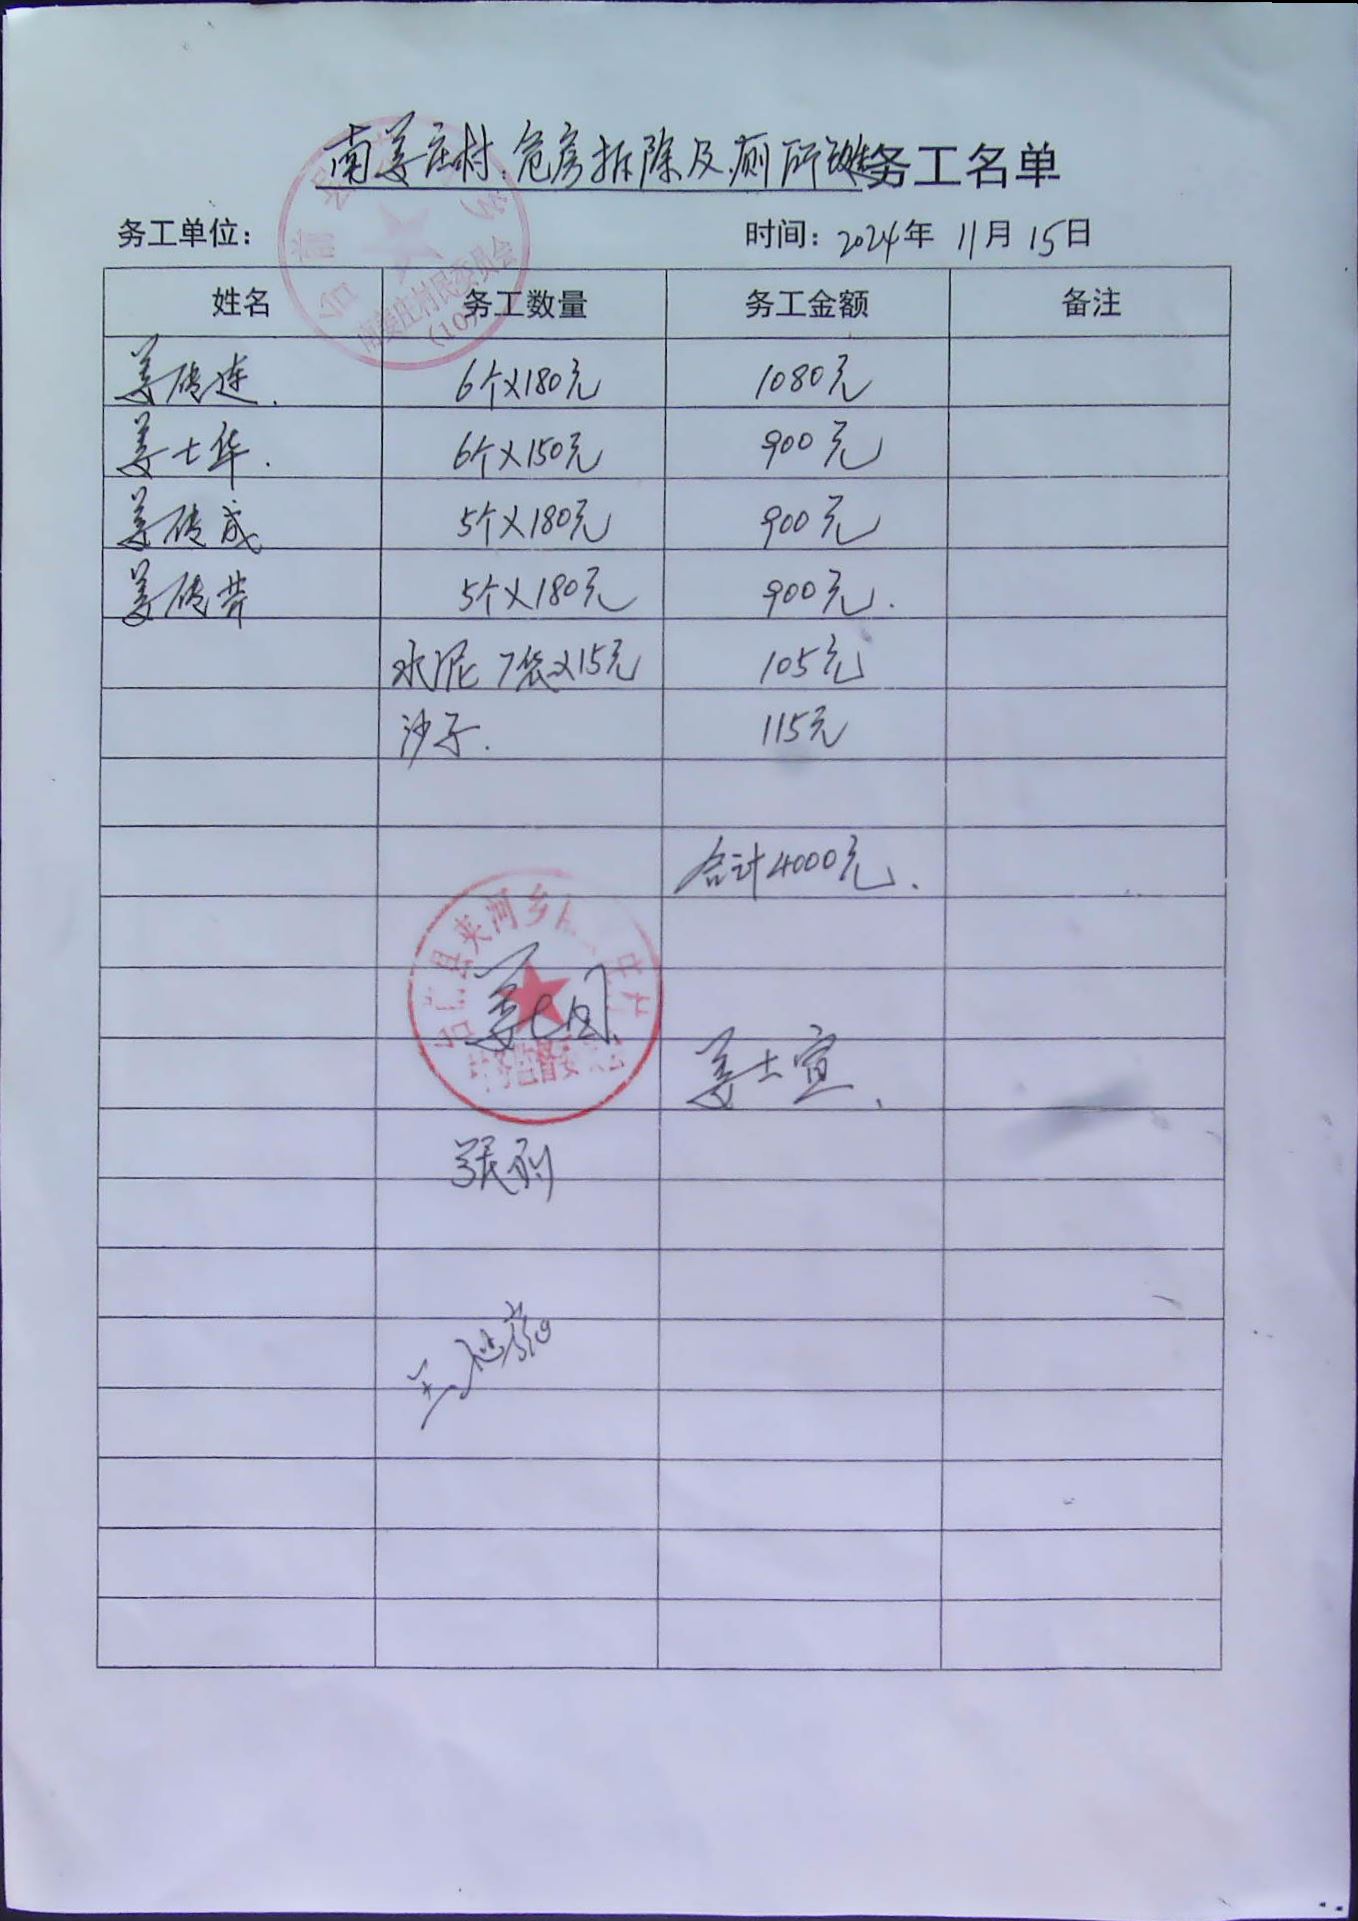 南姜庄村危房拆除及厕所改造务工名单
务工单位： 时间：2024年 11月 15日
姓名 务工数量 务工金额 备注
姜传连 6个×180元 1080元
姜士华 6个×150元 900元
姜传成 5个×180元 900元
姜传 5个×180元 900元
水泥 7袋×15元 105元
沙子 115元
合计4000元
县夹河乡
村务监督委
姜士宣
南姜庄村民委员会